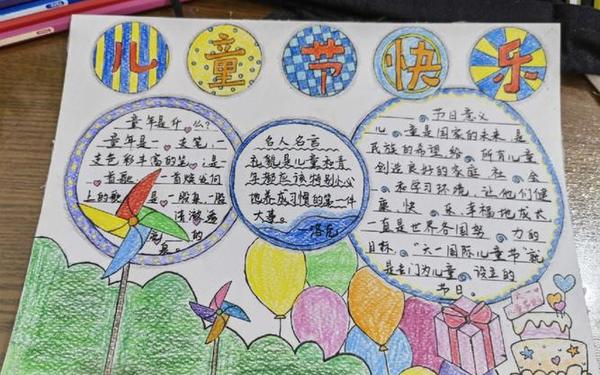 儿童节快乐
童年是什么?
童年是一支笔,一
支色彩丰富的笔;是
一首歌,一首烧发向
上的歌 是一股泉,一股
清澈透
的
泉。
名人名言
礼貌是儿童和青
年都应该特别小心
地养成习惯的第一件
大事。
——洛克
节日意义
儿童是国家的未来,是
民族的希望,给所有儿童
创造良好的家庭、社会
和学习环境,让他们健
康、快乐、幸福地成长,
一直是世界各国努力的
目标,“六一国际儿童节”就
是专门为儿童设立的
节日。